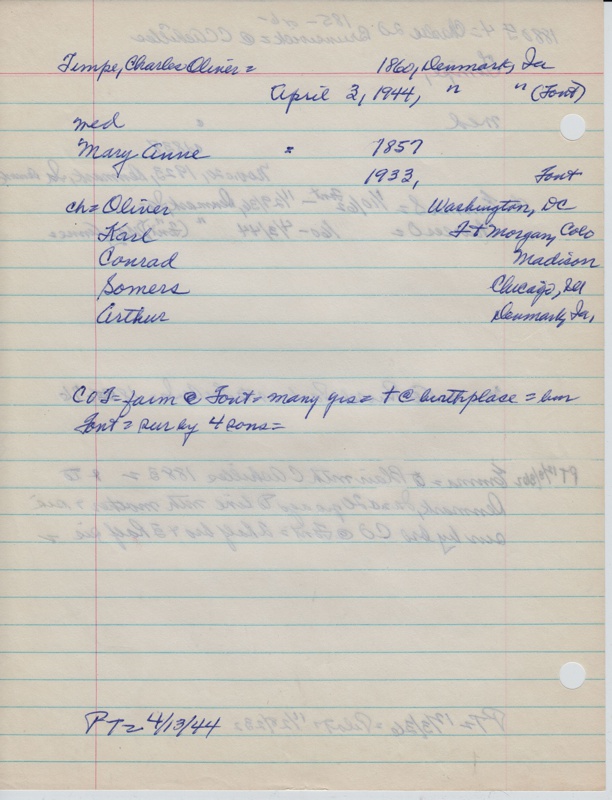 Timpe, Charles Oliver = 1860, Denmark, Ia
April 3, 1944, " " (Font)
med
Mary Anne = 1857
1933, Font
ch = Oliver Washington, DC
Karl Ft Morgan, Colo
Conrad Madison
Somers Chicago, Ill
Arthur Denmark, Ia,
COT = farm @ Font = many yrs = + @ birthplace = bur
Font = sur by 4 sons =
PT = 4/13/44